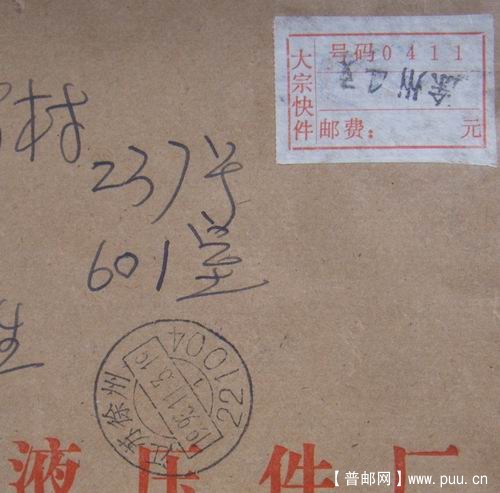 大宗快件
号码0411
徐州
邮费： 元
村
237号
601室
生
江苏徐州
221004
液压件厂
【普邮网】www.puu.cn